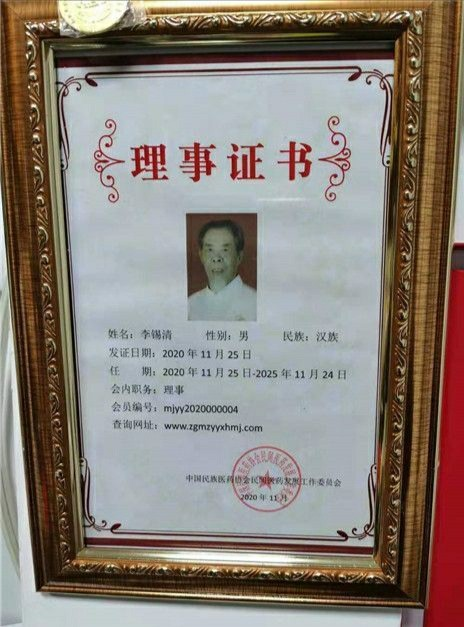 理事证书
姓名：李锡清 性别：男 民族：汉族
发证日期：2020 年 11 月 25 日
任 期：2020 年 11 月 25 日-2025 年 11 月 24 日
会内职务：理事
会员编号：mjyy2020000004
查询网址：www.zgmzyyxhmj.com
中国民族医药协会民间医药发展工作委员会
2020 年 11 月